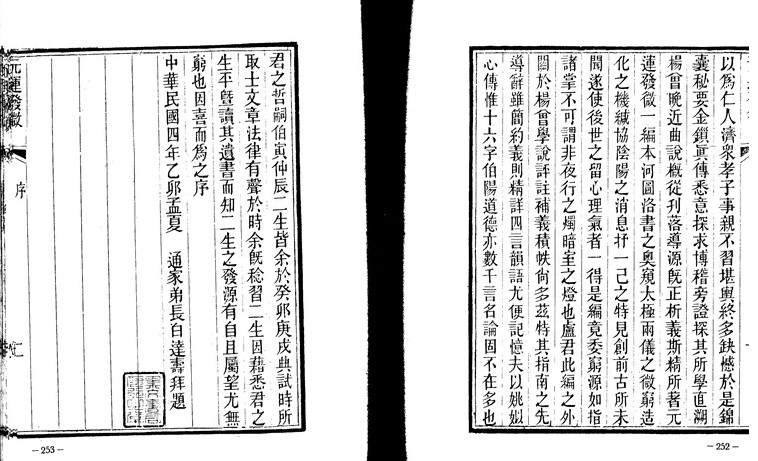 以爲仁人濟衆孝子事親不習堪輿終多缺憾於是錦
囊秘要金鎖眞傳悉意探求博稽旁證探其所學直溯
楊曾晚近曲說槪從刋落導源旣正析義斯精所著元
運發微一編本河圖洛書之奧窺太極兩儀之微窮造
化之機緘協陰陽之消息抒一己之特見創前古所未
聞遂使後世之留心理氣者一得是編竟委窮源如指
諸掌不可謂非夜行之燭暗室之燈也盧君此編之外
闗於楊曾學說評註補義積帙尙多茲特其指南之先
導辭雖簡約義則精詳四言韻語尤便記憶夫以姚姒
心傳惟十六字伯陽道德亦數千言名論固不在多也
—252—
君之哲嗣伯寅仲辰二生皆余於癸卯庚戌典試時所
取士文章法律有聲於時余旣稔習二生因藉悉君之
生平曁讀其遺書而知二生之發源有自且屬望尤無
窮也因喜而爲之序
中華民國四年乙卯孟夏 通家弟長白達壽拜題
元運發微
序
—253—